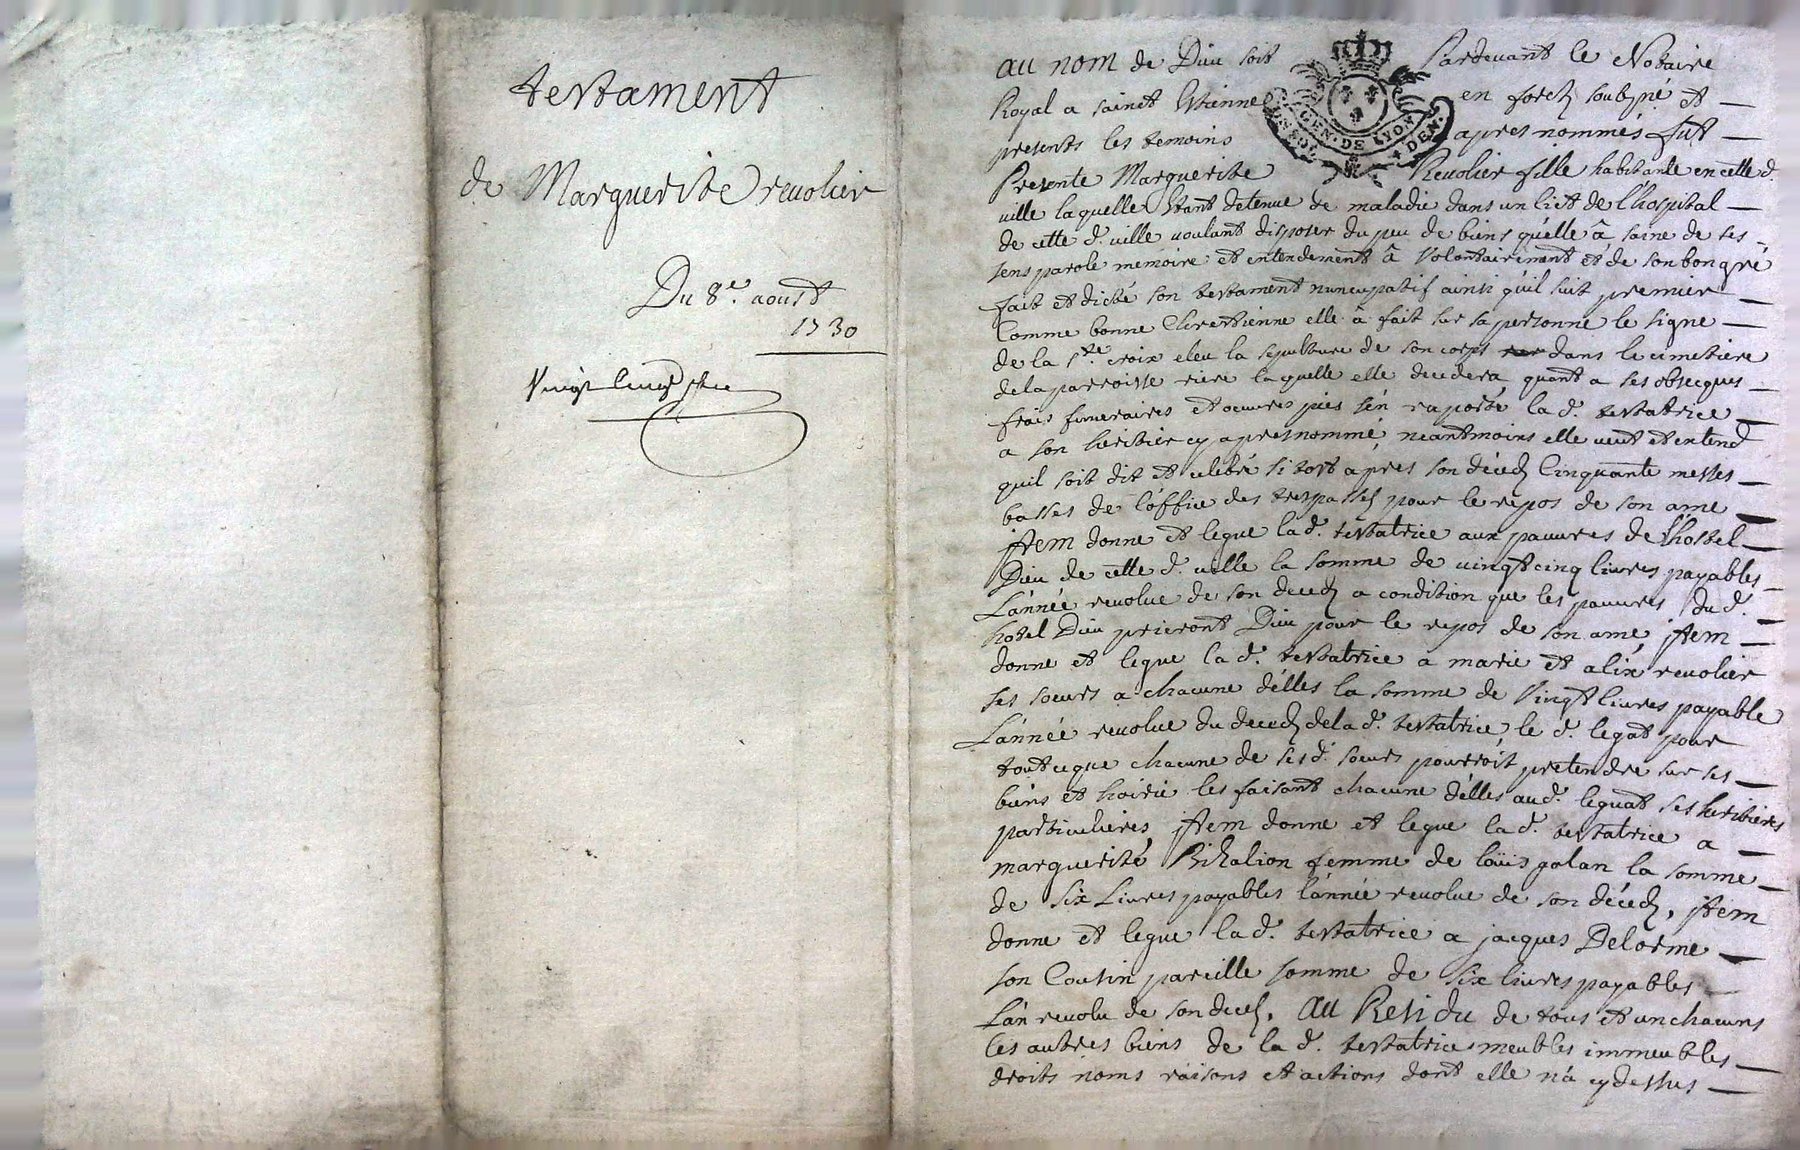 testament
de Marguerite revolier
Du 8e. aoust
1730
Vingt
au nom de Dieu soit Pardevant le Notaire
Royal a sainct Estienne en forez soubsné et
presents les temoins apres nommés fut
GEN. DE LYON
Presente Marguerite Revolier fille habitante en cette d.
ville laquelle Etant detenue de maladie dans un lict de l'hospital
de cette d. ville voulant disposer du peu de biens qu'elle â saine de ses
sens parole memoire et entendement â volontairement et de son bon gré
fait et dicté son testament nuncupatif ainsi qúil suit premier
Comme bonne Chrestienne elle â fait sur sa personne le signe
de la ste. croix eleu la sepulture de son corps dans le cimetiere
de la parroisse riere laquelle elle decedera quant a ses obseques
frais funeraires et oeuvres pies s'en raporte la d. testatrice
a son heritier cy apres nommé, neantmoins elle veut et entend
quil soit dit et celebré si tost apres son décedz Cinquante messes
basses de l'office des trespassés pour le repos de son ame
jtem donne et legue la d. testatrice aux pauvres de l'hostel
Dieu de cette d. ville la somme de vingt cinq livres payables
L'année revolue de son decedz a condition que les pauvres du d.
hotel Dieu prieront Dieu pour le repos de son ame, jtem
donne et legue la d. testatrice a marie et alix revolier
ses soeurs a chacune d'elles la somme de vingt livres payable
L'année revolue du decedz de la d. testatrice, le d. legat pour
tout ce que chacune de ses d. soeurs pourroit pretendre sur ses
biens et hoirie les faisant chacune d'elles au d. leguat ses heritieres
particulieres, jtem donne et legue la d. testatrice a
marguerite femme de loüis galan la somme
de Six Livres payables l'année revolue de son décedz, jtem
donne et legue la d. testatrice a jacques Delorme
son Cousin pareille somme de six livres payables
L'an revolu de son decedz. au Residu de tous et un chacuns
les autres biens de la d. testatrice meubles immeubles
droits noms raisons et actions dont elle n'a cy dessus